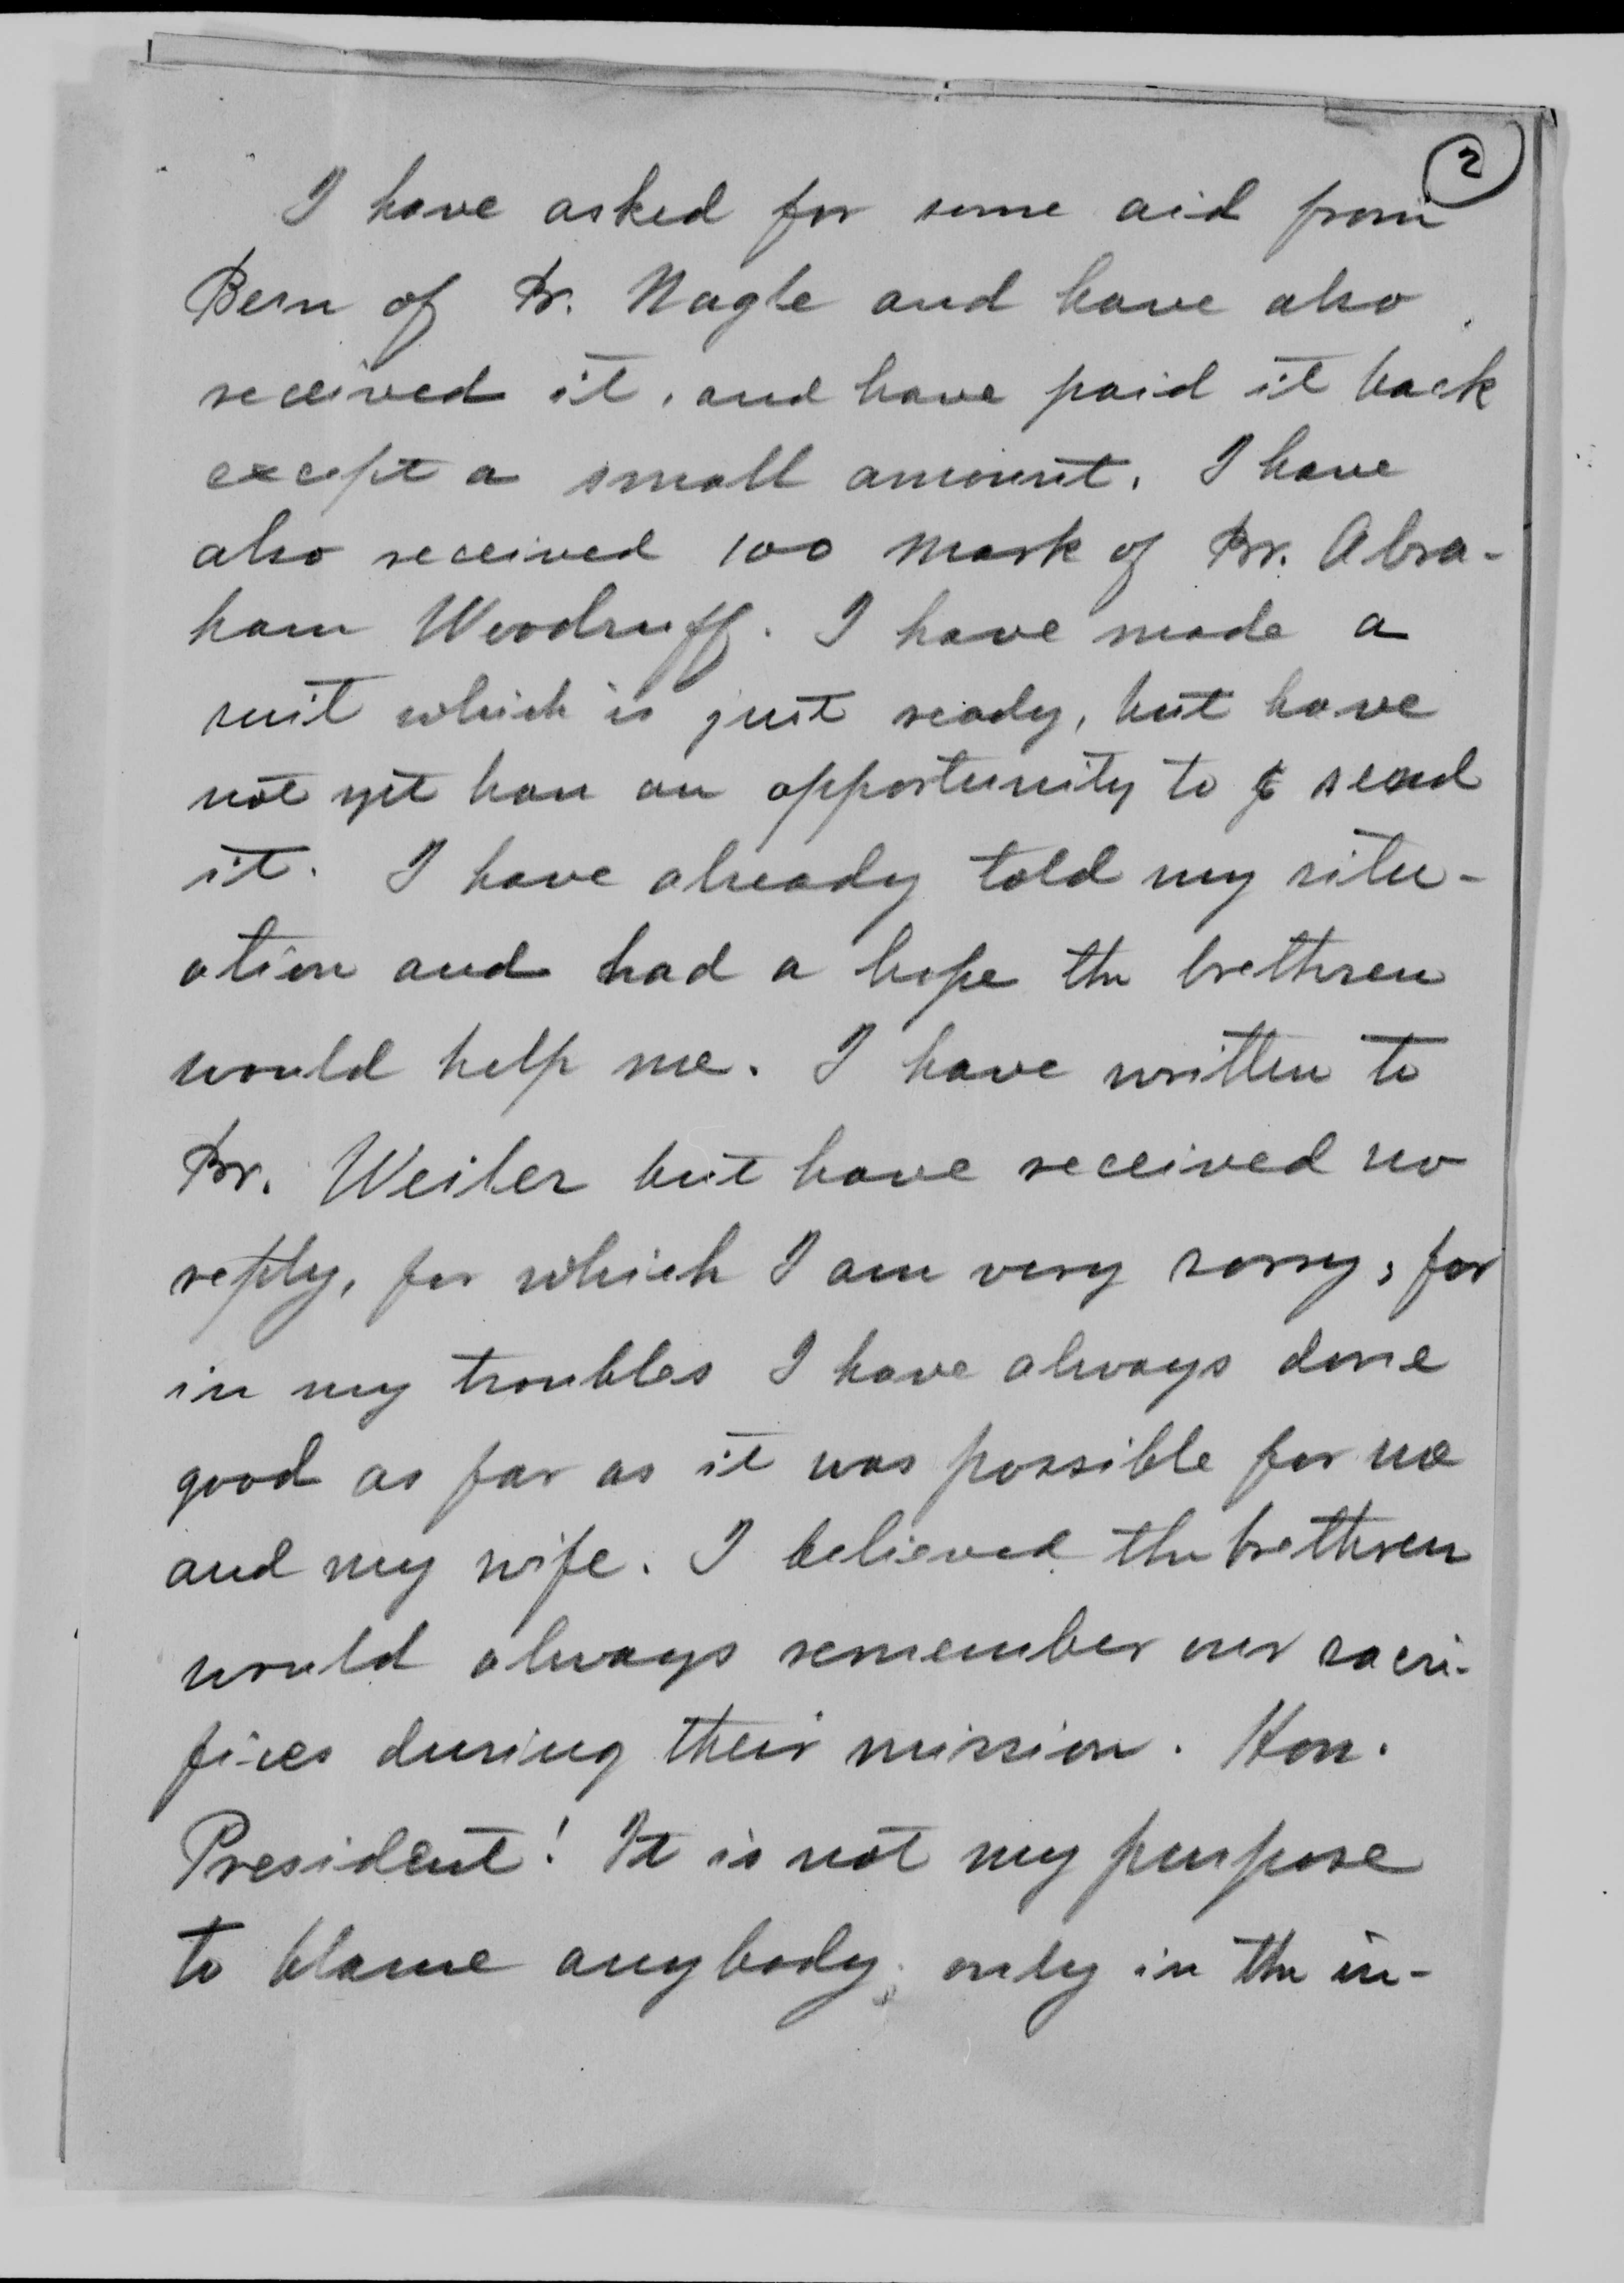 2
I have asked for some aid from
Bern of Br. Nagle and have also
received it, and have paid it back
except a small amount. I have
also received 100 Mark of Br. Abra-
ham Woodruff. I have made a
suit which is just ready, but have
not yet han an opportunity to send
it. I have already told my situ-
ation and had a hope the brethren
would help me. I have written to
Br. Weiler but have received no
reply, for which I am very sorry, for
in my troubles I have always done
good as far as it was possible for me
and my wife. I believed the brethren
would always remember our sacri-
fices during their mission. Hon.
President! It is not my purpose
to blame anybody, only in the in-